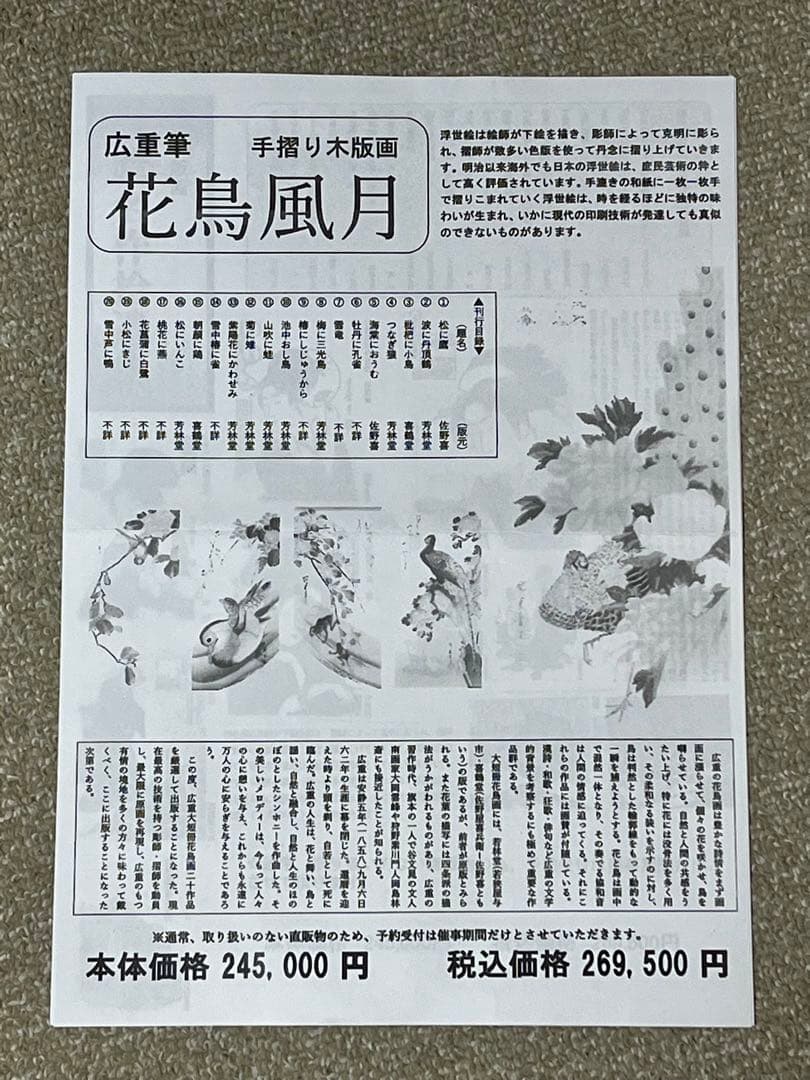 広重筆　手摺り木版画
花鳥風月
浮世絵は絵師が下絵を描き、彫師によって克明に彫ら
れ、摺師が数多い色版を使って丹念に摺り上げていきま
す。明治以来海外でも日本の浮世絵は、庶民芸術の粋と
して高く評価されています。手漉きの和紙に一枚一枚手
で摺りこまれていく浮世絵は、時を経るほどに独特の味
わいが生まれ、いかに現代の印刷技術が発達しても真似
のできないものがあります。
▲刊行目録▼
（題名）　（版元）
①　松に鷹　佐野喜
②　波に丹頂鶴　芳林堂
③　枇杷に小鳥　喜鶴堂
④　つなぎ猿　芳林堂
⑤　海棠におうむ　佐野喜
⑥　牡丹に孔雀　不詳
⑦　雪竜　不詳
⑧　梅に三光鳥　芳林堂
⑨　椿にしじゅうから　不詳
⑩　池中おし鳥　芳林堂
⑪　山吹に蛙　芳林堂
⑫　菊に雉　芳林堂
⑬　紫陽花にかわせみ　芳林堂
⑭　雪中椿に雀　不詳
⑮　朝顔に鶏　喜鶴堂
⑯　松にいんこ　芳林堂
⑰　桃花に燕　不詳
⑱　花菖蒲に白鷺　不詳
⑲　小松にきじ　不詳
⑳　雪中芦に鴨　不詳
広重の花鳥画は豊かな詩情をまず画
面に漲らせて、個々の花を咲かせ、鳥を
囀らせている。自然と人間の共感をう
たい上げ、特に花には没骨法を多く用
い、その柔和なる装いを示すのに対し、
鳥は判然とした輪郭線をもって動的な
一瞬を捕えようとする。花と鳥は画中
で混然一体となり、その奏でる協和音
は人間の情感に迫ってくる。それにこ
れらの作品には画賛が付随している。
漢詩・和歌・狂歌・俳句など広重の文学
的背景を考察するにも極めて重要な作
品群である。
大短冊花鳥画には、芳林堂（若狭屋与
市）・喜鶴堂（佐野屋喜兵衛＝佐野喜とも
いう）の版であるが、前者が原版とみら
れる。また花弁の描写には四条派の描
法がうかがわれるものがあり、広重の
修行時代、旗本の一人で谷文晁の文人
南画家大岡雲峰や狩野素川門人岡島林
斎にも接近したことが知られる。
広重は安静五年（一八五八）九月六日
六二年の生涯に幕を閉じた。還暦を迎
えた時より頭を剃り、自若として死に
臨んだ。広重の人生は、花と舞い、鳥と
謡い、自然と融合し、自然と人生のほの
ぼのとしたシンホニーを作曲した。そ
の美しいメロディーは、今もって人々
の心に憩いを与え、これからも永遠に
万人の心に安らぎを与えることであろ
う。
この度、広重大短冊花鳥画二十作品
を厳選して出版することになった。現
在最高の技術を持つ彫師・摺師を動員
し、最大限に原画を再現し、広重のもつ
有情の境地を多くの方々に味わって戴
くべく、ここに出版することになった
次第である。
※通常、取り扱いのない直販物のため、予約受付は催事期間だけとさせていただきます。
本体価格 245,000 円　税込価格 269,500 円